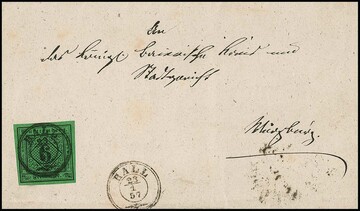 An
das Königl. bairische Kreis und
Stadtgericht
Würzburg.
6
HALL
23
1
57